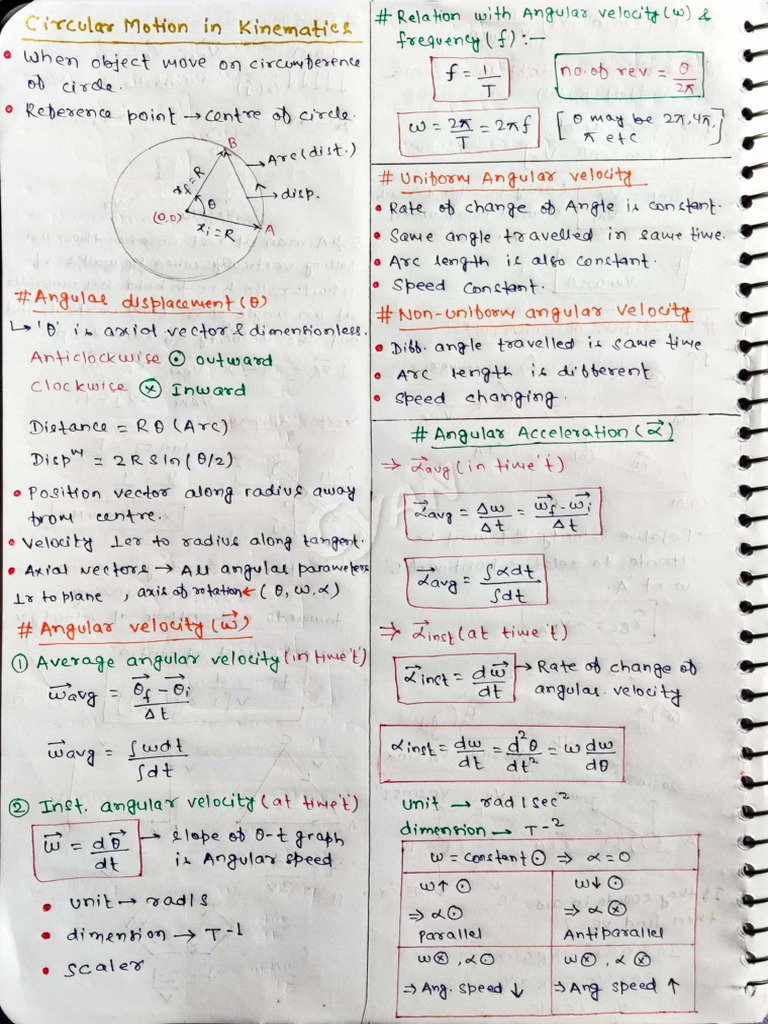 Circular Motion in Kinematics
• When object move on circumference
of circle.
• Reference point → centre of circle.
B
Arc (dist.)
xf = R
θ
disp.
(0,0)
xi = R
A
# Angular displacement (θ)
↳ 'θ' is axial vector & dimensionless.
Anticlockwise ⊙ outward
Clockwise ⊗ Inward
Distance = Rθ (Arc)
Dispⁿ = 2R sin (θ/2)
• Position vector along radius away
from centre.
• Velocity ⊥er to radius along tangent.
• Axial vectors → All angular parameters
⊥r to plane , axis of rotation ← (θ, ω, α)
# Angular velocity (ω⃗)
① Average angular velocity (in time 't')
ω⃗avg = (θ⃗f - θ⃗i) / Δt
ω⃗avg = ∫ωdt / ∫dt
② Inst. angular velocity (at time 't')
ω⃗ = dθ⃗ / dt → slope of θ-t graph
is Angular speed
• unit → rad/s
• dimension → T-1
• scaler
# Relation with Angular velocity (ω) &
frequency (f) :—
f = 1/T
no. of rev = θ/2π
ω = 2π/T = 2πf
[θ may be 2π, 4π,
π etc]
# Uniform Angular velocity
• Rate of change of Angle is constant.
• Same angle travelled in same time.
• Arc length is also constant.
• Speed constant.
# Non-uniform angular velocity
• Diff. angle travelled is same time
• Arc length is different
• Speed changing.
# Angular Acceleration (α⃗)
⇒ α⃗avg (in time 't')
α⃗avg = Δω/Δt = (ω⃗f - ω⃗i)/Δt
α⃗avg = ∫αdt / ∫dt
⇒ α⃗inst (at time 't')
α⃗inst = dω⃗/dt → Rate of change of
angular velocity
αinst = dω/dt = d²θ/dt² = ω dω/dθ
unit → rad/sec²
dimension → T-2
ω = constant ⊙ ⇒ α = 0
ω↑ ⊙
⇒ α⊙
Parallel
ω↓ ⊙
⇒ α⊗
Antiparallel
ω⊗, α⊙
⇒ Ang. speed ↓
ω⊗, α⊗
⇒ Ang speed ↑